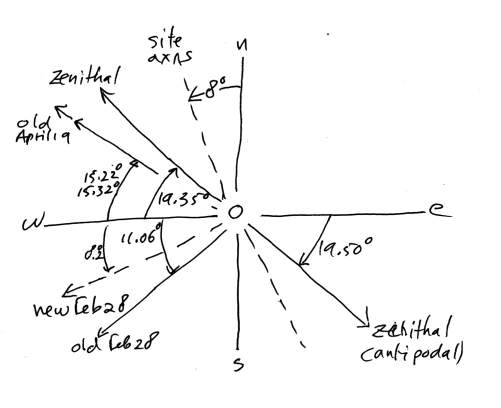 site
axns
n
zenithal
8°
old
April 19
15.22°
15.32°
19.35°
w
o
e
11.06°
19.50°
8.2
new Feb 28
old Feb 28
zenithal
(antipodal)
s